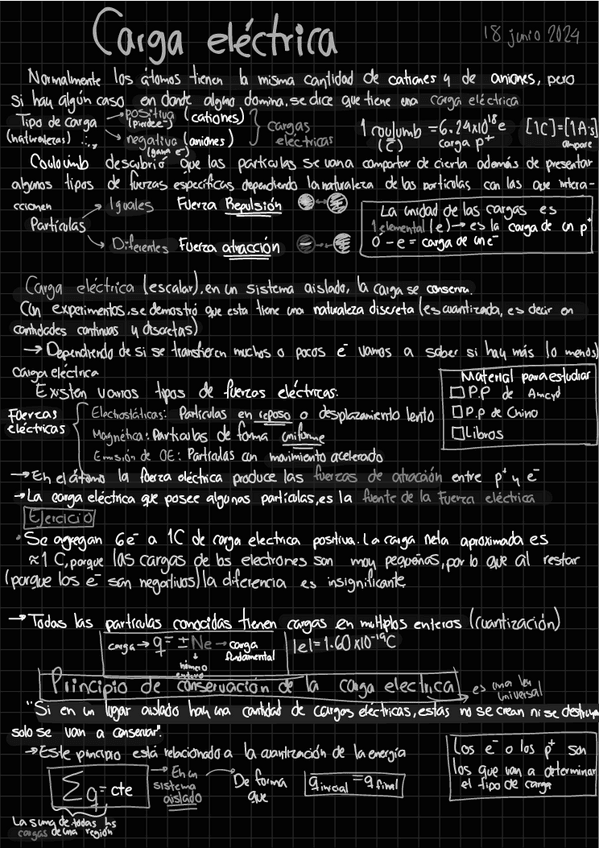 Carga eléctrica
18 junio 2024
Normalmente los átomos tienen la misma cantidad de cationes y de aniones, pero
si hay algún caso en donde alguno domina, se dice que tiene una carga eléctrica
Tipo de carga → positiva (cationes)
(naturalezas) (pierde e⁻)
→ negativa (aniones)
(gana e⁻)
cargas
eléctricas
1 coulumb = 6.24x10¹⁸ e [1C]=[1A·s]
(C) carga p⁺ ampere
Couloumb descubrió que las partículas se van a comportar de cierta además de presentar
algunos tipos de fuerzas específicas dependiendo la naturaleza de las partículas con las que intera-
ccionen
Partículas
→ Iguales Fuerza Repulsión
→ Diferentes Fuerza atracción
La unidad de las cargas es
1 elemental (e) → es la carga de un p⁺
0⁻ - e = carga de un e⁻
Carga eléctrica (escalar), en un sistema aislado, la carga se conserva.
Con experimentos, se demostró que esta tiene una naturaleza discreta (es cuantizada, es decir en
cantidades continuas y discretas)
→ Dependiendo de si se transfieren muchos o pocos e⁻ vamos a saber si hay más (o menos)
carga eléctrica
Existen varios tipos de fuerzas eléctricas:
Fuercas
eléctricas
Electrostáticas: Partículas en reposo o desplazamiento lento
Magnética: Partículas de forma uniforme
Emisión de OE: Partículas con movimiento acelerado
Material para estudiar
P.P de
P.P de Chino
Libros
→ En el átomo la fuerza eléctrica produce las fuerzas de atracción entre p⁺ y e⁻
→ La carga eléctrica que posee algunas partículas, es la fuente de la Fuerza eléctrica
Ejercicio
• Se agregan 6e⁻ a 1C de carga electrica positiva. La carga neta aproximada es
≈ 1 C, porque las cargas de los electrones son muy pequeñas, por lo que al restar
(porque los e⁻ san negativos) la diferencia es insignificante
→ Todas las partículas conocidas tienen cargas en múltiplos enteros (cuantización)
carga → q = ± Ne → carga
fundamental
↓
número
entero
|e| = 1.60x10⁻¹⁹C
Principio de conservación de la carga electrica → es una ley
universal
"Si en un lugar aislado hay una cantidad de cargas eléctricas, estas no se crean ni se destruyen
solo se van a conservar".
→ Este principio está relacionado a la cuantización de la energía
∑q = cte → En un
sistema
aislado
De forma
que
q inicial = q final
La suma de todas las
cargas de una región
Los e⁻ o los p⁺ son
los que van a determinar
el tipo de carga